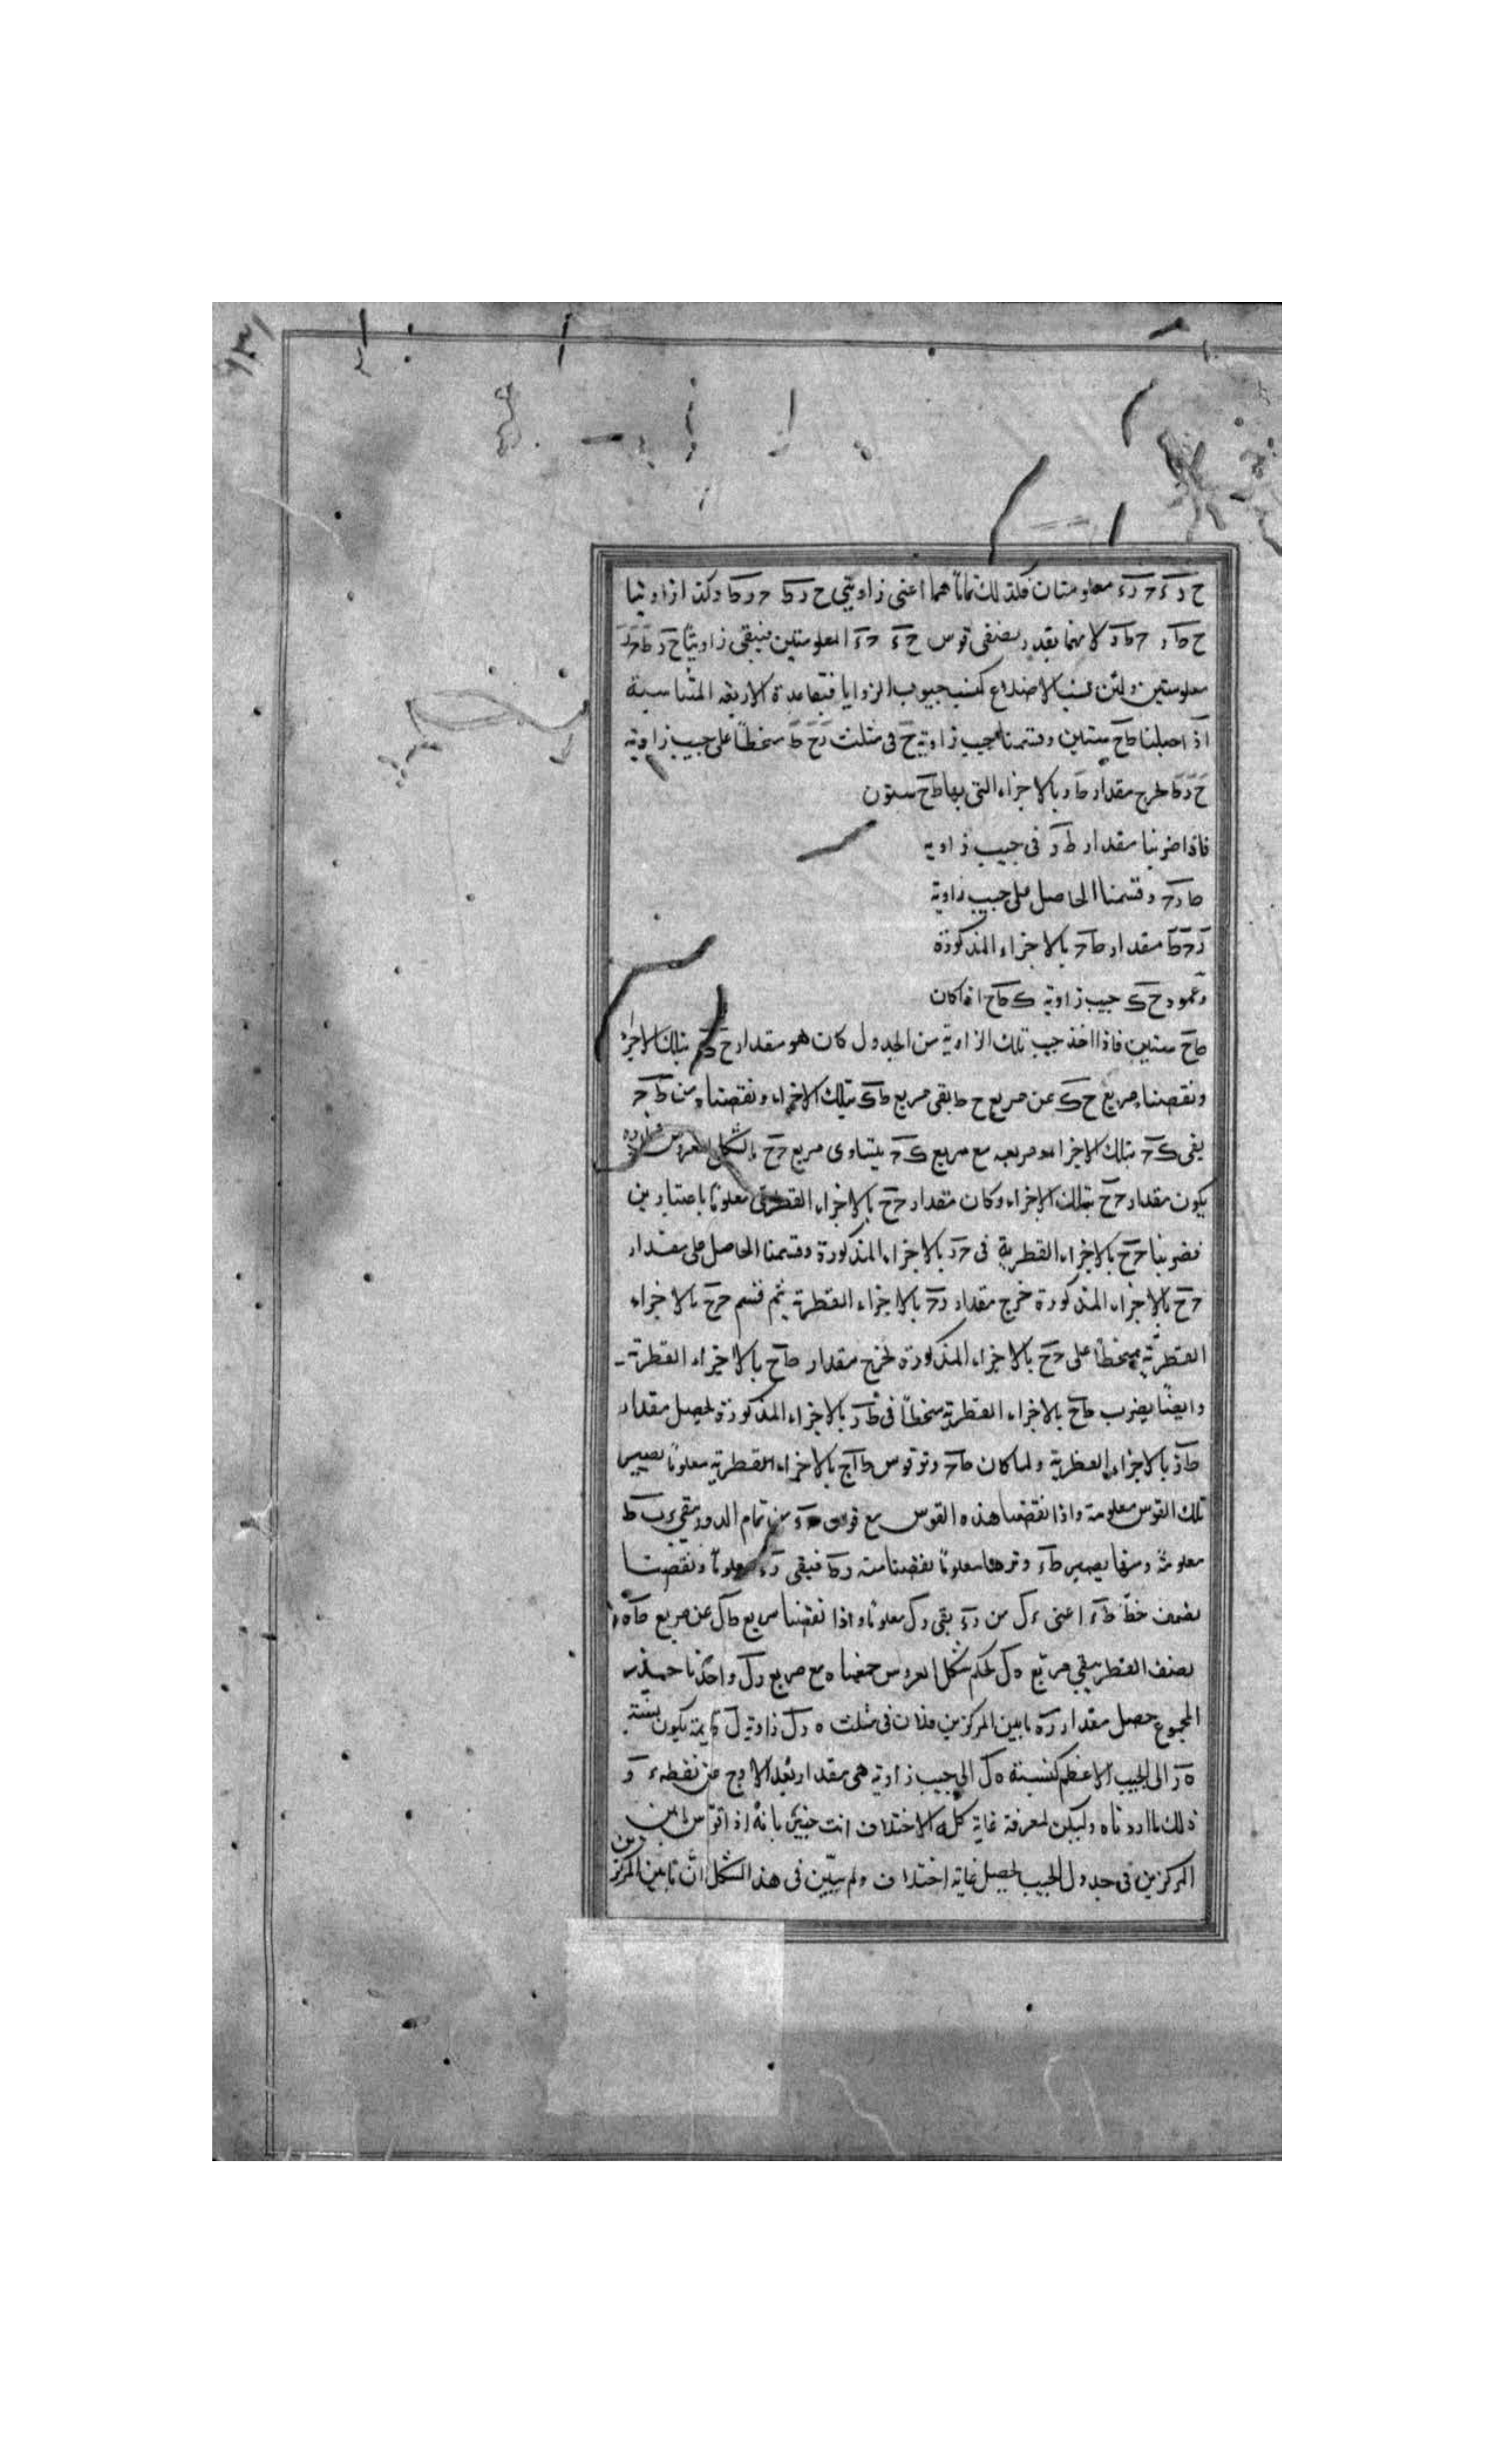 ح د ء ح د ء معلومتان فكذلك تماماهما اعنى زاويتى ح د ط ح د ط وكذا زاويتا
ح ط د ح ط د لانهما بقدر نصفى قوس ح ء ح ء المعلومتين فيبقى زاويتا ح د ط ح د
معلومتين ولئن نسب الاضلاع كنسب جيوب الزوايا فبقاعدة الاربعة المتناسبة
اذ اجعلنا ط ح ستين وقسمنا جيب زاوية ح فى مثلث د ح ط منحطا على جيب زاوية
ح د ط لخرج مقدار ط د بالاجزاء التى بها ط ح ستون
فاذا ضربنا مقدار ط د فى جيب زاوية
ط د ح وقسمنا الحاصل على جيب زاوية
د ح ط مقدار ط ح بالاجزاء المذكورة
وعمود ح ك جيب زاوية ك ط ح اذا كان
ط ح ستين فاذا اخذ جيب تلك الزاوية من الجدول كان هو مقدار ح ك بتلك الاجزا
ونقصنا مربع ح ك عن مربع ح ط بقى مربع ط ك بتلك الاجزاء ونقصناه من ط ح
بقى ك ح بتلك الاجزاء ومربعه مع مربع ك ح يتساوى مربع ح ح بالشكل العروس
يكون مقدار ح ح بتلك الاجزاء وكان مقدار ح ح بالاجزاء القطرية معلوما باعتبارين
فضربنا ح ح بالاجزاء القطرية فى ح د بالاجزاء المذكورة وقسمنا الحاصل على مقدار
ح ح بالاجزاء المذكورة خرج مقدار د ح بالاجزاء القطرية ثم قسم ح ح بالاجزاء
القطرية منحطا على ح ح بالاجزاء المذكورة لخرج مقدار ط ح بالاجزاء القطرية
وايضا يضرب ط ح بالاجزاء القطرية منحطا فى ط د بالاجزاء المذكورة ليحصل مقدار
ط د بالاجزاء القطرية ولما كان ط ح وتر قوس ط ا ح بالاجزاء القطرية معلوما يصير
تلك القوس معلومة واذا نقصنا هذه القوس مع قوس ح ء من تمام الدور بقى ء ب ط
معلومة ومنها يصير ط ء وترها معلوما نقصنا منه د ط فيبقى د ء معلوما ونقصنا
نصف خط ط ء اعنى ء ل من د ء بقى د ل معلوما واذا نقصنا مربع ط ل عن مربع ط ه
نصف القطر يبقى مربع ه ل بحكم شكل العروس جمعناه مع مربع د ل واخذنا جذر
المجموع حصل مقدار د ه ما بين المركزين فلان فى مثلث ه د ل زاوية ل قايمة يكون نسبة
ه د الى الجيب الاعظم كنسبة ه ل الى جيب زاوية هى مقدار بعد الاوج عن نقطة ء و
ذلك ما اردناه وليكن لمعرفة غاية كل الاختلاف انت خبير بانه اذا قوس ما بين
المركزين فى جدول الجيب يحصل غاية اختلاف ولم يتبين فى هذا الشكل ان ما بين المركزين